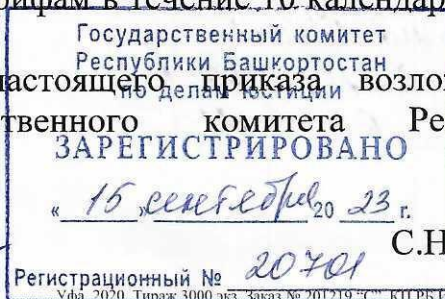 рифам в течение 10 календар
Государственный комитет
Республики Башкортостан
по делам юстиции
настоящего приказа возло
твенного комитета Ре
ЗАРЕГИСТРИРОВАНО
« 15 » сентября 20 23 г.
С.Н
Регистрационный № 20701
Уфа, 2020. Тираж 3000 экз. Заказ № 201219 "С". КП РБ